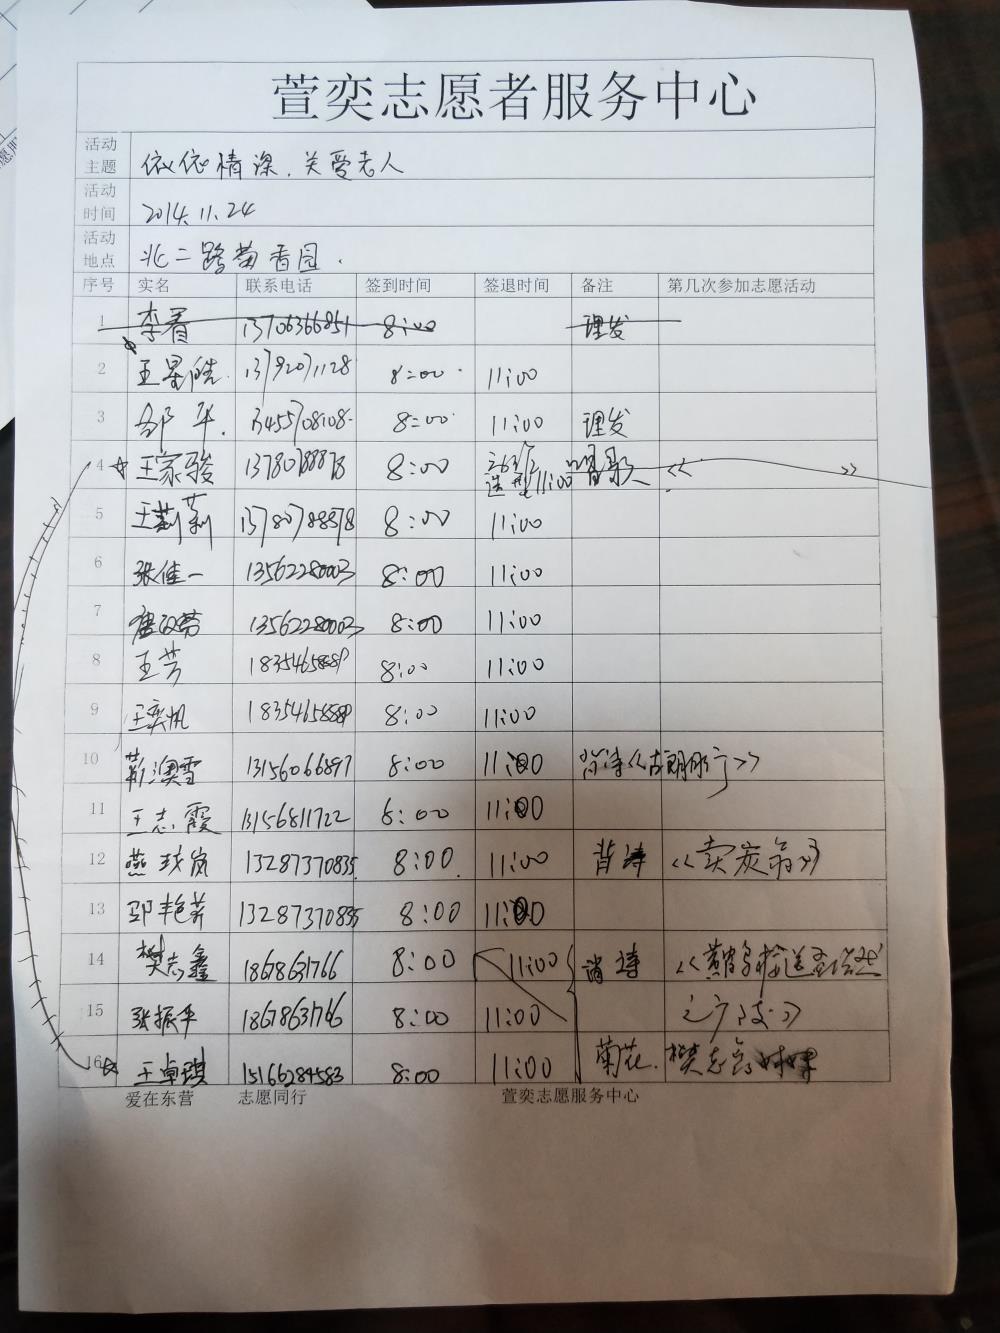 萱奕志愿者服务中心
活动主题 依依情深.关爱老人
活动时间 2014.11.24
活动地点 北二路菊香园.
序号 实名 联系电话 签到时间 签退时间 备注 第几次参加志愿活动
1 李春 13706366851 8:00 理发
2 王星皓. 13792071128 8:00 11:00
3 邵华. 13455708108 8:00 11:00 理发
4 王家骏 13780788878 8:00 11:00 唱歌 《 》
5 王莉莉 13780788878 8:00 11:00
6 张佳一 13562280003 8:00 11:00
7 13562280003 8:00 11:00
8 王芳 18354658889 8:00 11:00
9 王奕帆 18354658889 8:00 11:00
10 靳澳雪 13156066897 8:00 11:00 背诗《古朗月行》
11 王志霞 13156811722 8:00 11:00
12 燕 岚 13287370835 8:00 11:00 背诗 《卖炭翁》
13 邵艳 13287370835 8:00 11:00
14 樊志鑫 18678631766 8:00 11:00 背诗 《黄鹤楼送孟浩然
15 张振华 18678631766 8:00 11:00 之广陵》
16 王卓琪 15166284583 8:00 11:00 菊花. 樊志鑫
爱在东营 志愿同行 萱奕志愿服务中心